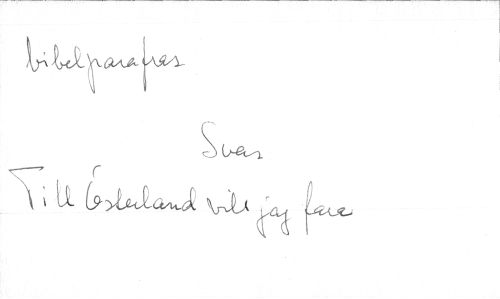 bibelparafras
Sven
Till Österland vill jag fara